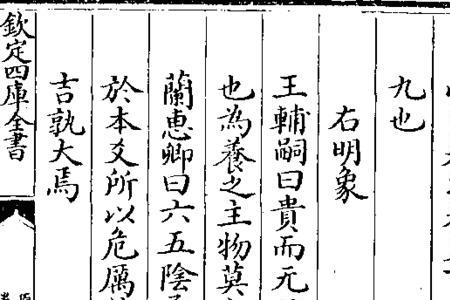 九也
右明象
王輔嗣曰貴而无
也為養之主物莫
蘭惠卿曰六五陰
於本爻所以危厲
吉孰大焉
欽定四庫全書